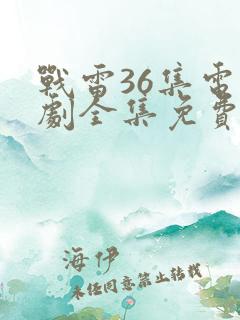 戰雷36集電
劇全集免費
海伊
未任同意禁止轉載